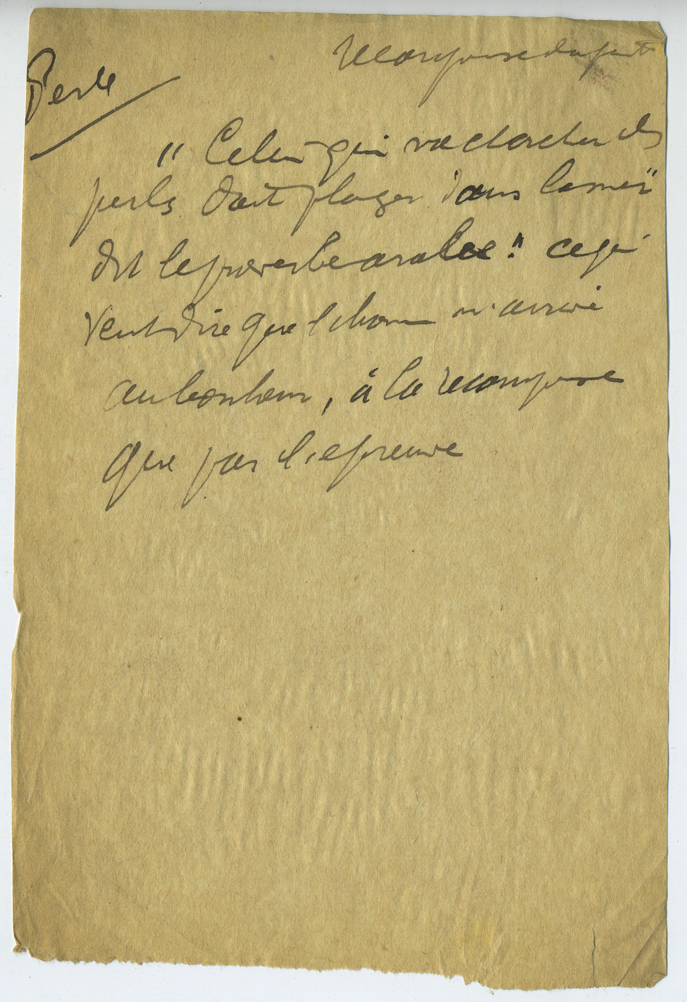 Recompense du juste
Perle
" Celui qui va chercher des
perles doit plonger dans la mer "
dit le proverbe arabe " ce qui
veut dire que l'homme n'arrive
au bonheur, à la recompense
que par l'epreuve